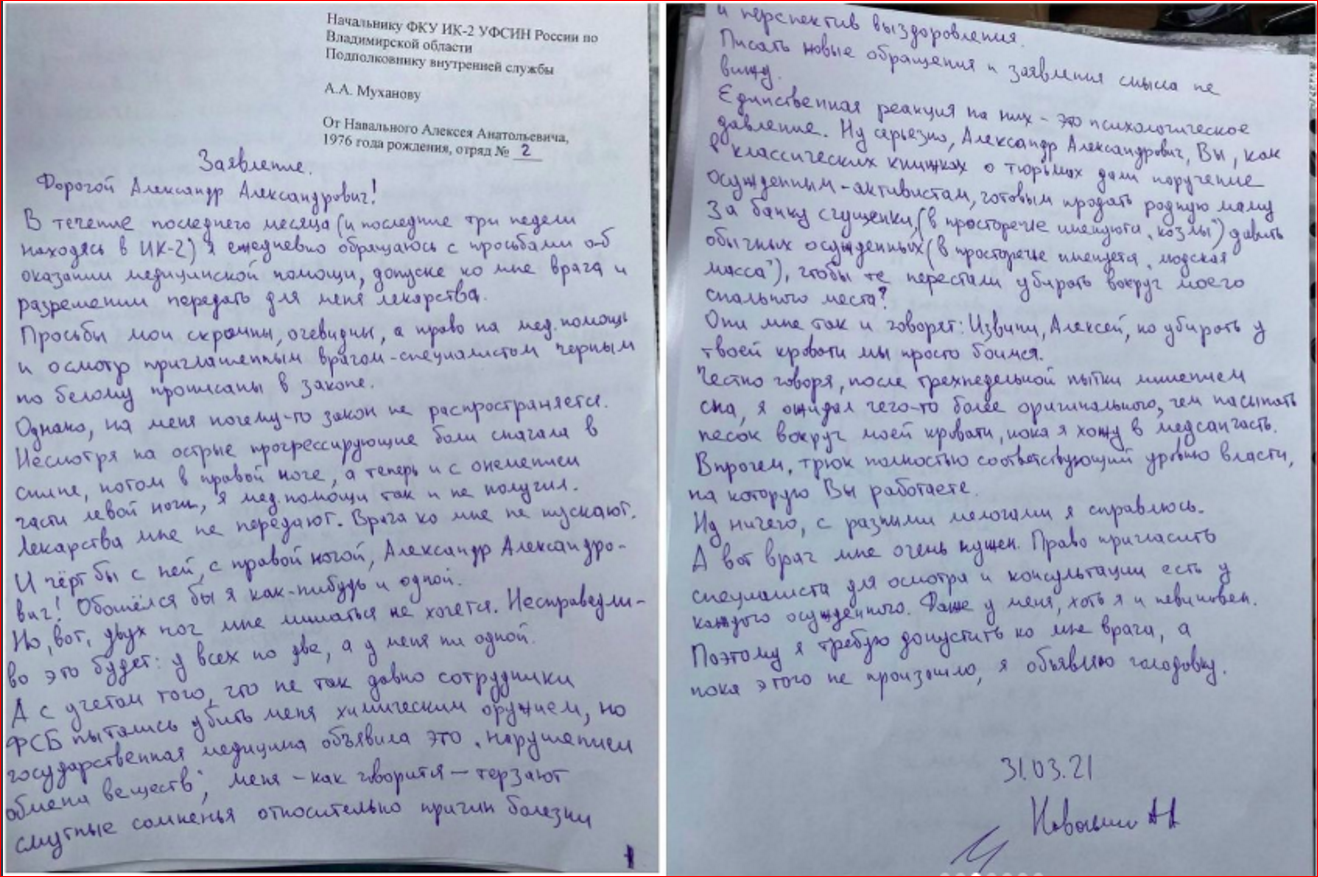 Начальнику ФКУ ИК-2 УФСИН России по
Владимирской области
Подполковнику внутренней службы
А.А. Муханову
От Навального Алексея Анатольевича,
1976 года рождения, отряд № 2
Заявление.
Дорогой Александр Александрович!
В течение последнего месяца (и последние три недели
находясь в ИК-2) я ежедневно обращаюсь с просьбами об
оказании медицинской помощи, допуске ко мне врача и
разрешении передать для меня лекарства.
Просьбы мои скромны, очевидны, а право на мед.помощь
и осмотр приглашенным врачом-специалистом черным
по белому прописаны в законе.
Однако, на меня почему-то закон не распространяется.
Несмотря на острые прогрессирующие боли сначала в
спине, потом в правой ноге, а теперь и с онемением
части левой ноги, я мед.помощи так и не получил.
Лекарства мне не передают. Врача ко мне не пускают.
И чёрт бы с ней, с правой ногой, Александр Александро-
вич! Обошёлся бы я как-нибудь и одной.
Но, вот, двух ног мне лишаться не хочется. Несправедли-
во это будет: у всех по две, а у меня ни одной.
А с учетом того, что не так давно сотрудники
ФСБ пытались убить меня химическим оружием, но
государственная медицина объявила это „нарушением
обмена веществ", меня – как говорится – терзают
смутные сомненья относительно причин болезни
1
и перспектив выздоровления.
Писать новые обращения и заявления смысла не
вижу.
Единственная реакция на них – это психологическое
давление. Ну серьезно, Александр Александрович, Вы, как
в классических книжках о тюрьмах дали поручение
осужденным-активистам, готовым продать родную маму
за банку сгущенки, (в просторечие именуются „козлы") давить
обычных осужденных (в просторечье именуется „людская
масса"), чтобы те перестали убирать вокруг моего
спального места?
Они мне так и говорят: Извини, Алексей, но убирать у
твоей кровати мы просто боимся.
Честно говоря, после трехнедельной пытки лишением
сна, я ожидал чего-то более оригинального, чем насыпать
песок вокруг моей кровати, пока я хожу в медсанчасть.
Впрочем, трюк полностью соответствующий уровню власти,
на которую Вы работаете.
Ну ничего, с разными мелочами я справлюсь.
А вот врач мне очень нужен. Право пригласить
специалиста для осмотра и консультации есть у
каждого осужденного. Даже у меня, хоть я и невиновен.
Поэтому я требую допустить ко мне врача, а
пока этого не произошло, я объявляю голодовку.
31.03.21
Навальный АА